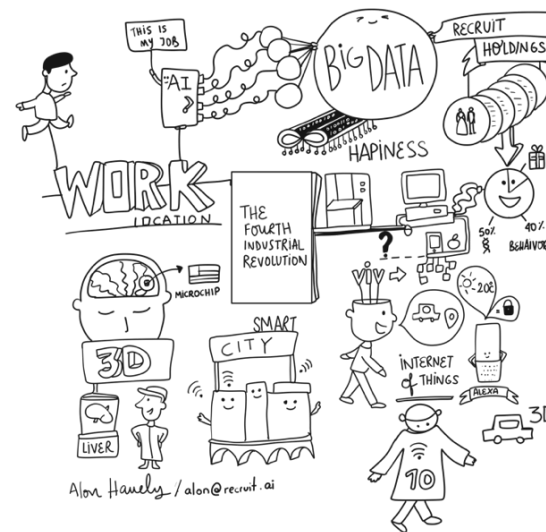 THIS IS
MY JOB
AI
BIG DATA
RECRUIT
HOLDINGS
HAPINESS
WORK
LOCATION
THE
FOURTH
INDUSTRIAL
REVOLUTION
?
50%
40%
BEHAIVOR
MICROCHIP
3D
LIVER
SMART
CITY
-20¢
INTERNET
of THINGS
ALEXA
10
3D
Alon Hauely / alon@recruit.ai